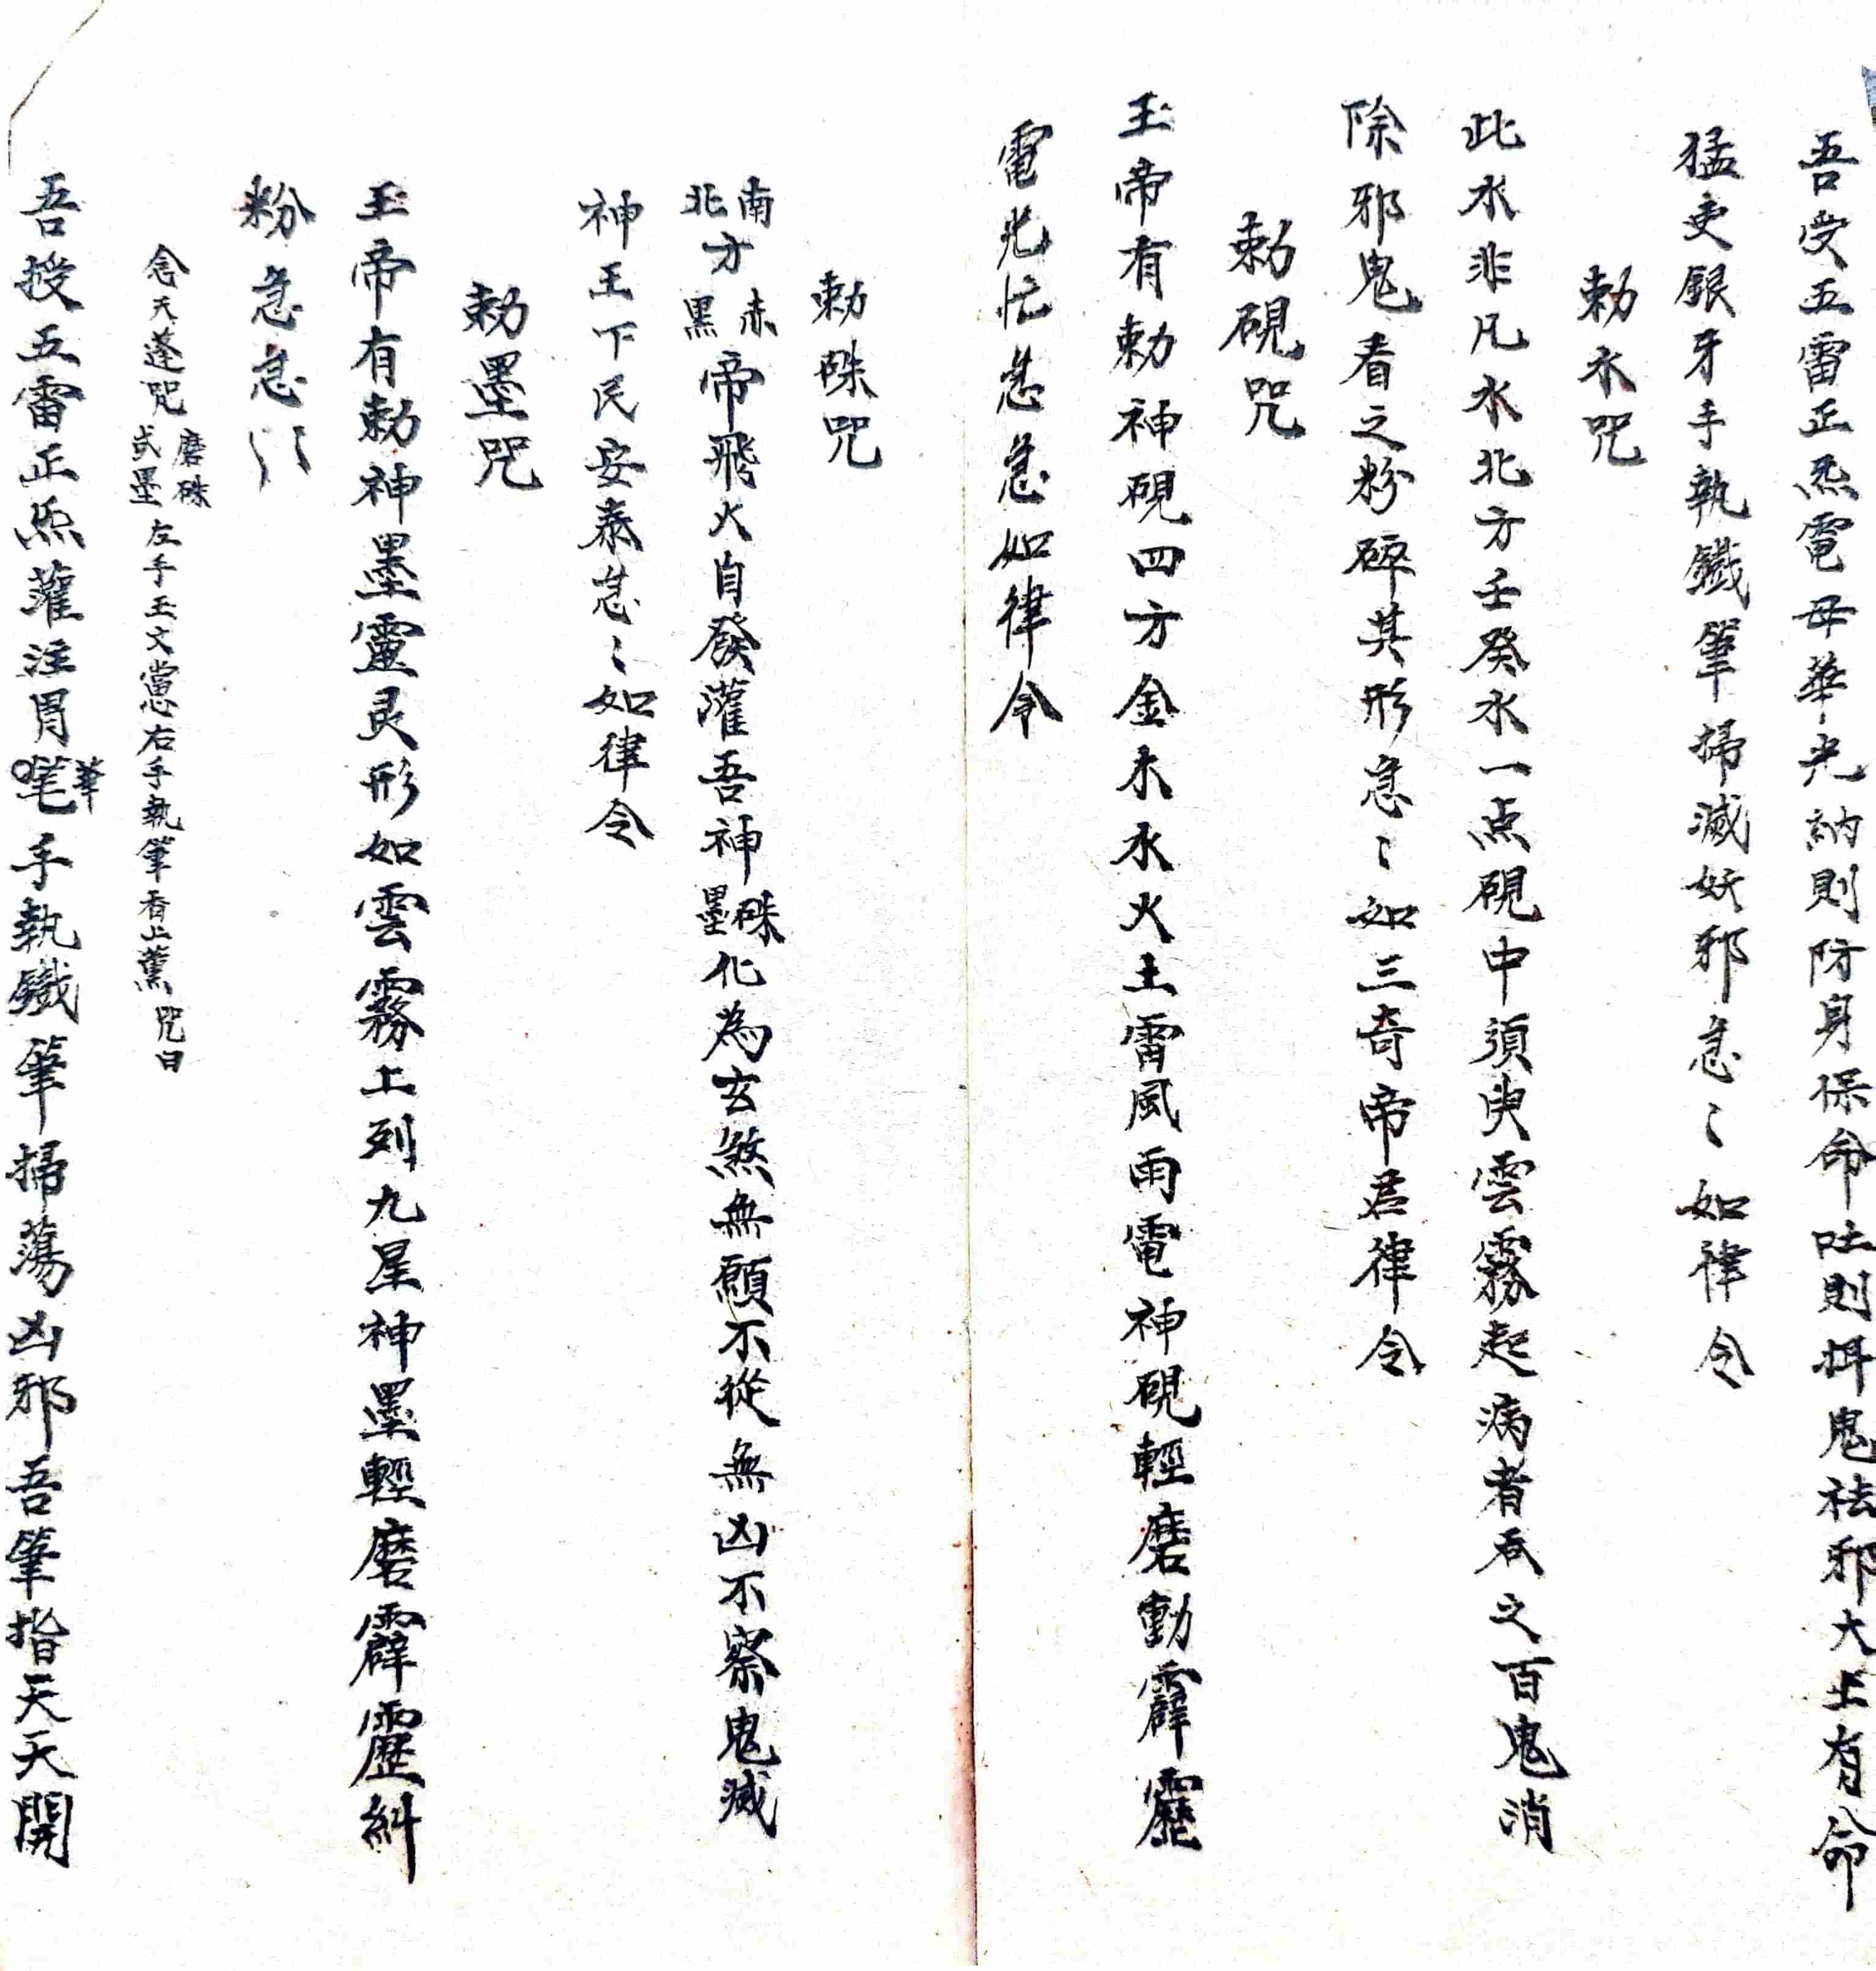 吾受五雷正炁電母華光納則防身保命吐則捍鬼祛邪大上有命
猛吏銀牙手執鐵筆掃滅妖邪急〻如律令
勅水咒
此水非凡水水北方壬癸水一点硯中須臾雲霧起病者吞之百鬼消
除邪鬼看之粉碎其形急〻如三奇帝君律令
勅硯咒
玉帝有勅神硯四方金木水火土雷風雨電神硯輕磨動霹靂
電光忙急急如律令
勅硃咒
南北方赤黑帝飛火自發灌吾神硃墨化為玄煞無願不從無凶不察鬼滅
神王下民安泰急〻如律令
勅墨咒
玉帝有勅神墨靈灵形如雲霧上列九星神墨輕磨霹靂糾
粉急急
念天蓬咒磨硃或墨左手玉文黨右手執筆香上薰咒曰
吾授五雷正炁灌注胃手執鐵筆掃蕩凶邪吾筆指天天開